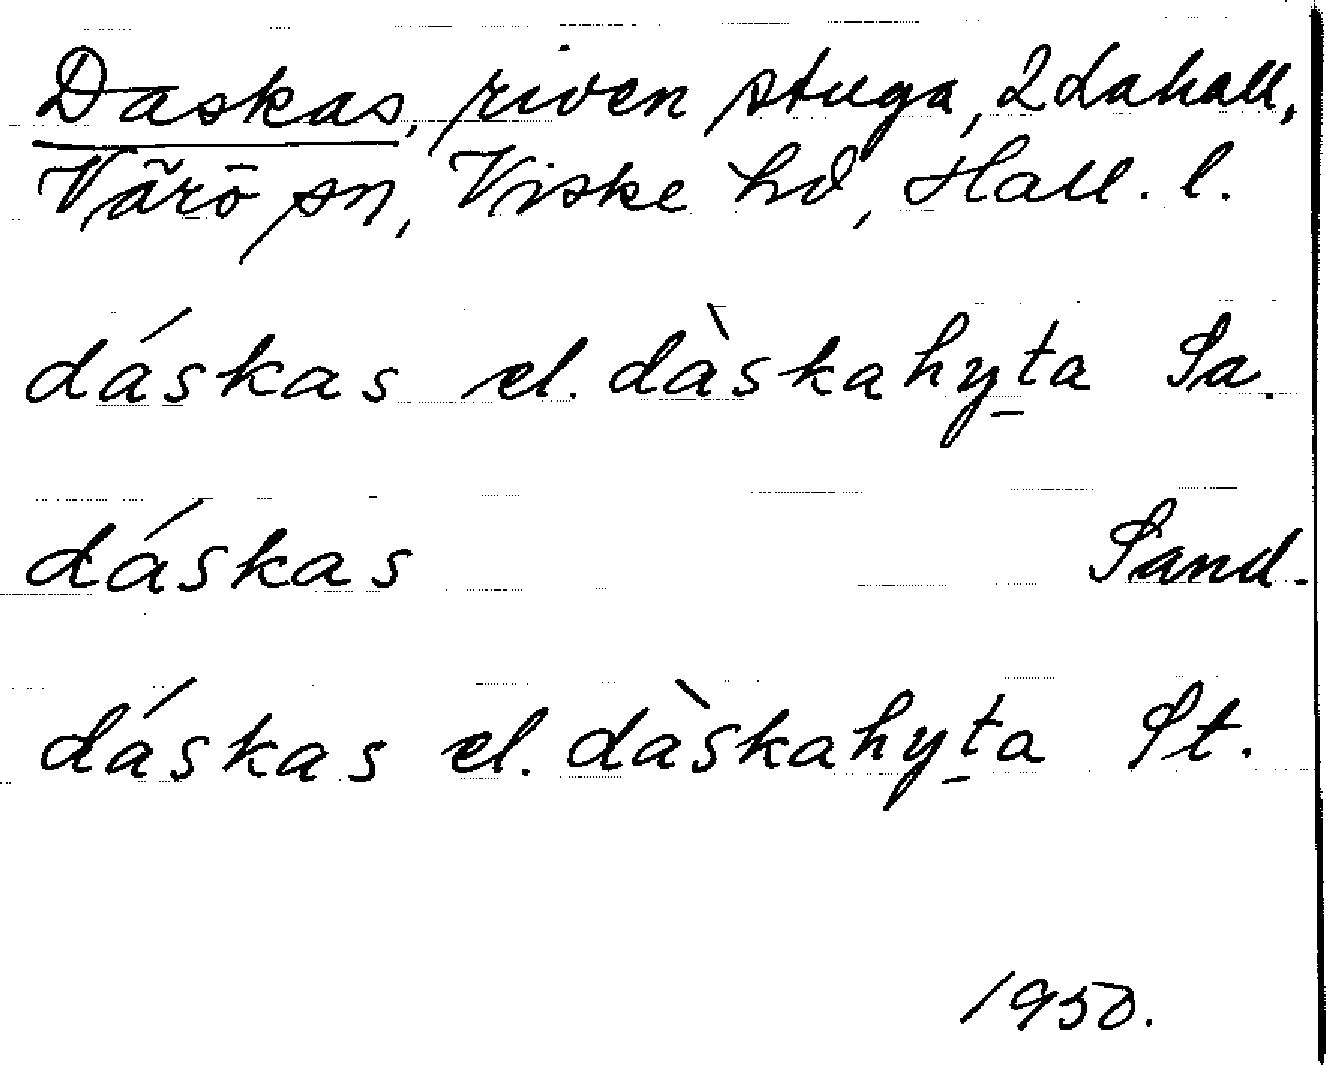 Daskas, riven stuga, 2 Lahall,
Värö sn, Viske hd, Hall. l.
dáskas el. dàskahy̱ta Sa.
dáskas Sand.
dáskas el. dàskahy̱ta St.
1950.